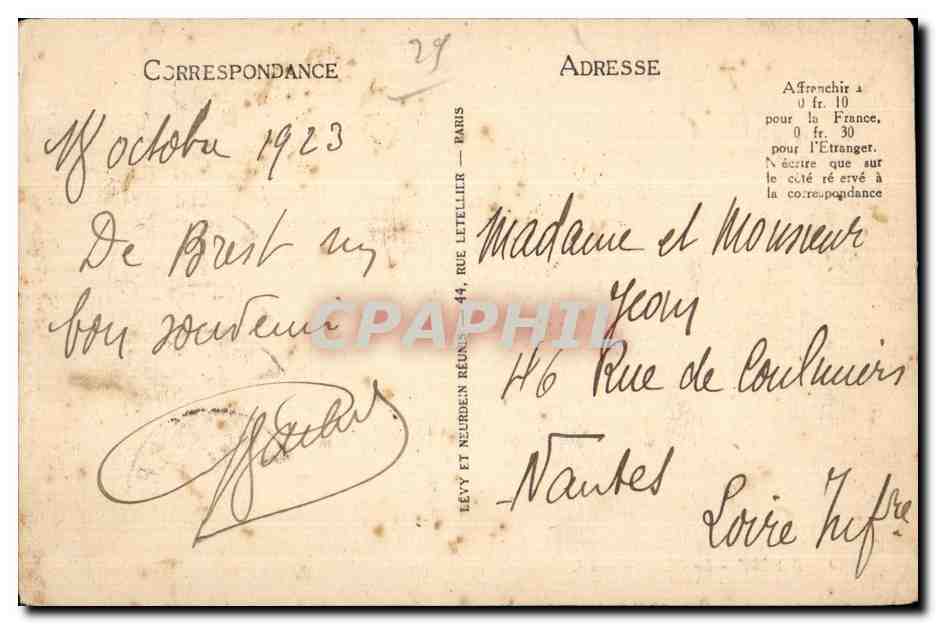 CORRESPONDANCE
29
18 octobre 1923
De Brest un
bon souvenir
LÉVY ET NEURDEIN RÉUNIS — 44, RUE LETELLIER — PARIS
ADRESSE
Affranchir à
0 fr. 10
pour la France,
0 fr. 30
pour l'Etranger.
N'écrire que sur
le côté réservé à
la correspondance
Madame et Monsieur
Jean
46 Rue de Coulmiers
Nantes
Loire Infre
CPAPHIL